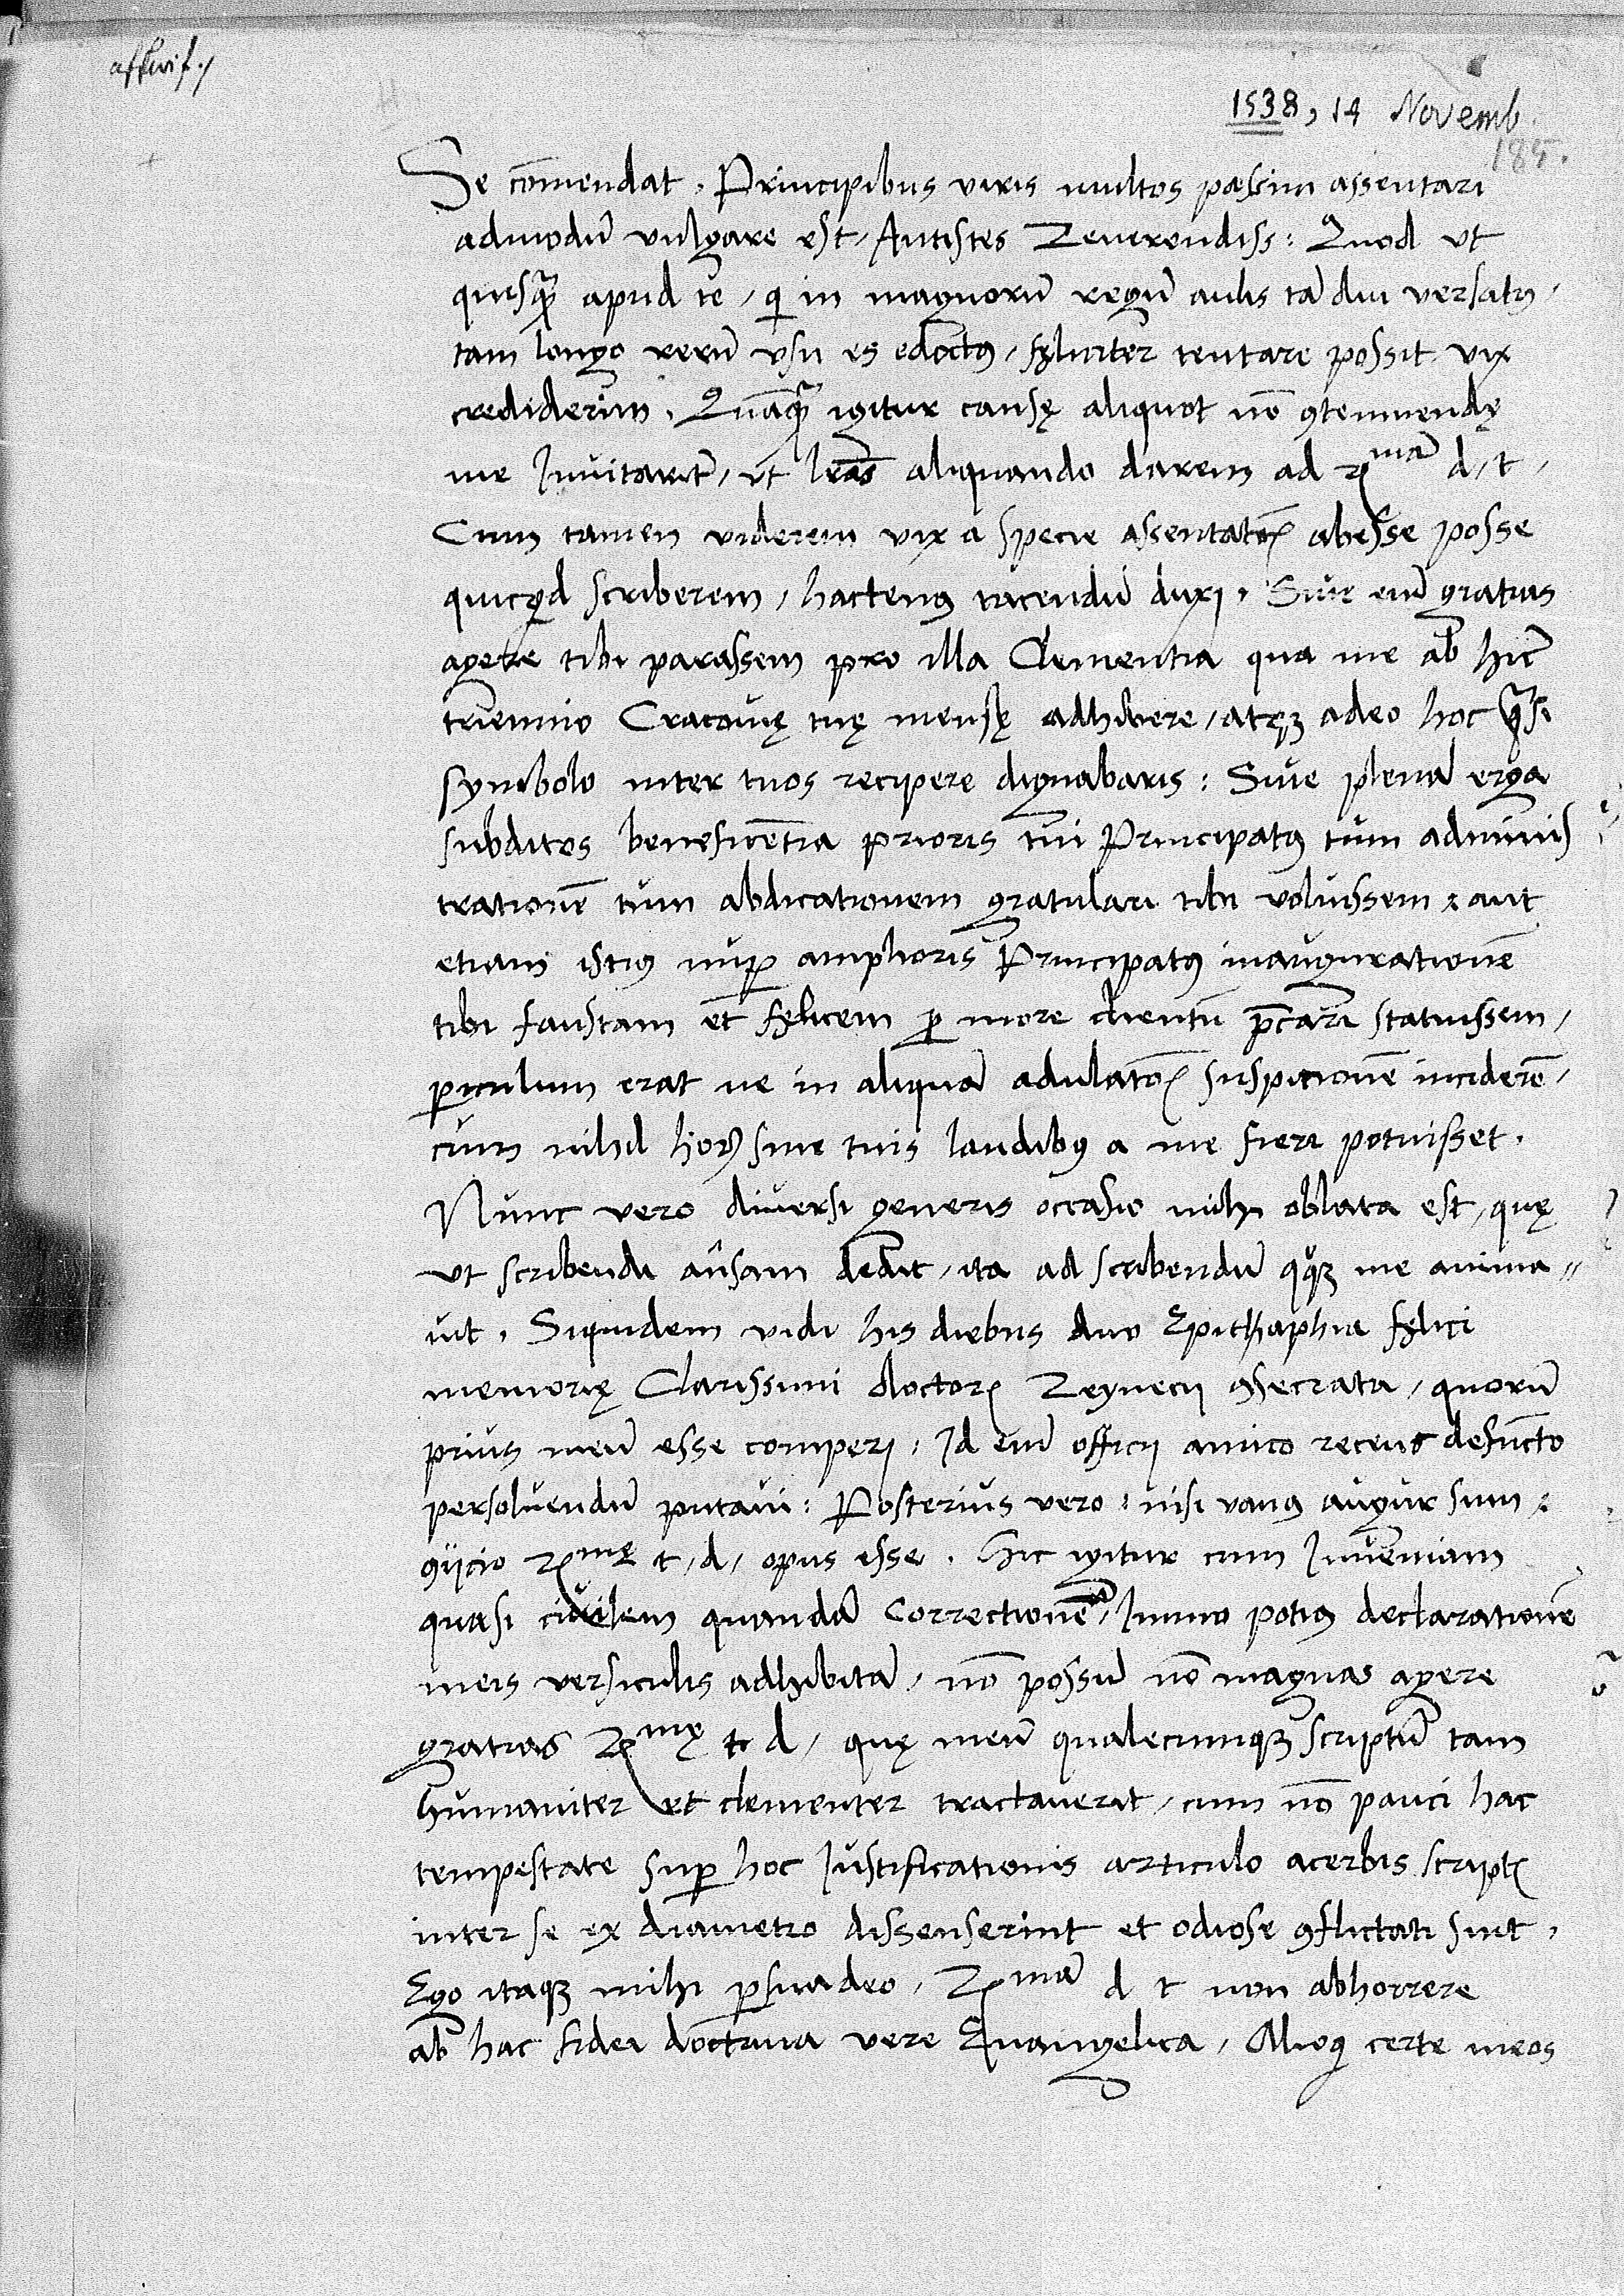 1538, 14 Novemb.
185.
Se com̄endat. Principibus viris multos passim assentari
admodū vulgare est, Antistes Reuerendiss: Quod ut
quisq̃ apud te, qi in magnorū regū aulis tā diu versatꝰ,
tam longo rerū vsu es edoctꝰ, fęliciter tentare possit vix
crediderim. Quāq̃ igitur causę aliquot nō ꝯtemnendę
me Inuitarīt, ut lr̄as aliquando darem ad Rmā d, t,
Cum tamen viderem vix a specie assentatōꝭ abesse posse
quicqd scriberem, hactenꝰ tacendū duxi. Siue em̄ gratias
agere tibi parassem pro illa Clementia qua me ab hīc
triennio Cracouię tuę mensę adhibere, atqꝫ adeo hoc q̃si
symbolo inter tuos recipere dignabaris: Siue plenā erga
subditos beneficētia prioris tui Principatꝰ tum adminis
trationē tum abdicationem gratulari tibi voluissem: aut
etiam istiꝰ nuꝑ amplioris Principatꝰ inaugurationē
tibi faustam et fęlicem ꝑ more clientū p̄cari statuissem,
ꝑiculum erat ne in aliquā adulatōꝭ suspitionē inciderē,
cum nihil hoꝝ sine tuis laudibꝰ a me fieri potuisset.
Nunc vero diuersi generis occasio mihi oblata est, quę
vt scribendi ansam dedit, ita ad scribendū qqꝫ me anima=
uit. Siquidem vidi his diebus duo Epithaphia fęlici
memorię Clarissimi doctoꝭ Reynecij ꝯsecrata, quorū
prius meū esse comperi. Id em̄ officij amico recens defūcto
persoluendū putaui: Posterius vero: nisi vanꝰ augur sum:
ꝯijcio Rmę t, d, opus esse. Hic igitur cum Inueniam
quasi ciuilem quandā Correctionē, Immo potiꝰ declarationē
meis versiculis adhibitā, nō possū nō magnas agere
gratias Rmę t d, quę meū qualecumqꝫ scriptū tam
humaniter et clementer tractauerit, cum nō pauci hac
tempestate suꝑ hoc Iustificationis articulo acerbis scriptꝭ
inter se ex diametro dissenserint et odiose ꝯflictati sint.
Ego itaqꝫ mihi ꝑsuadeo, Rmā d t non abhorrere
ab hac fidei doctrina vere Euangelica, Alioqi certe meos